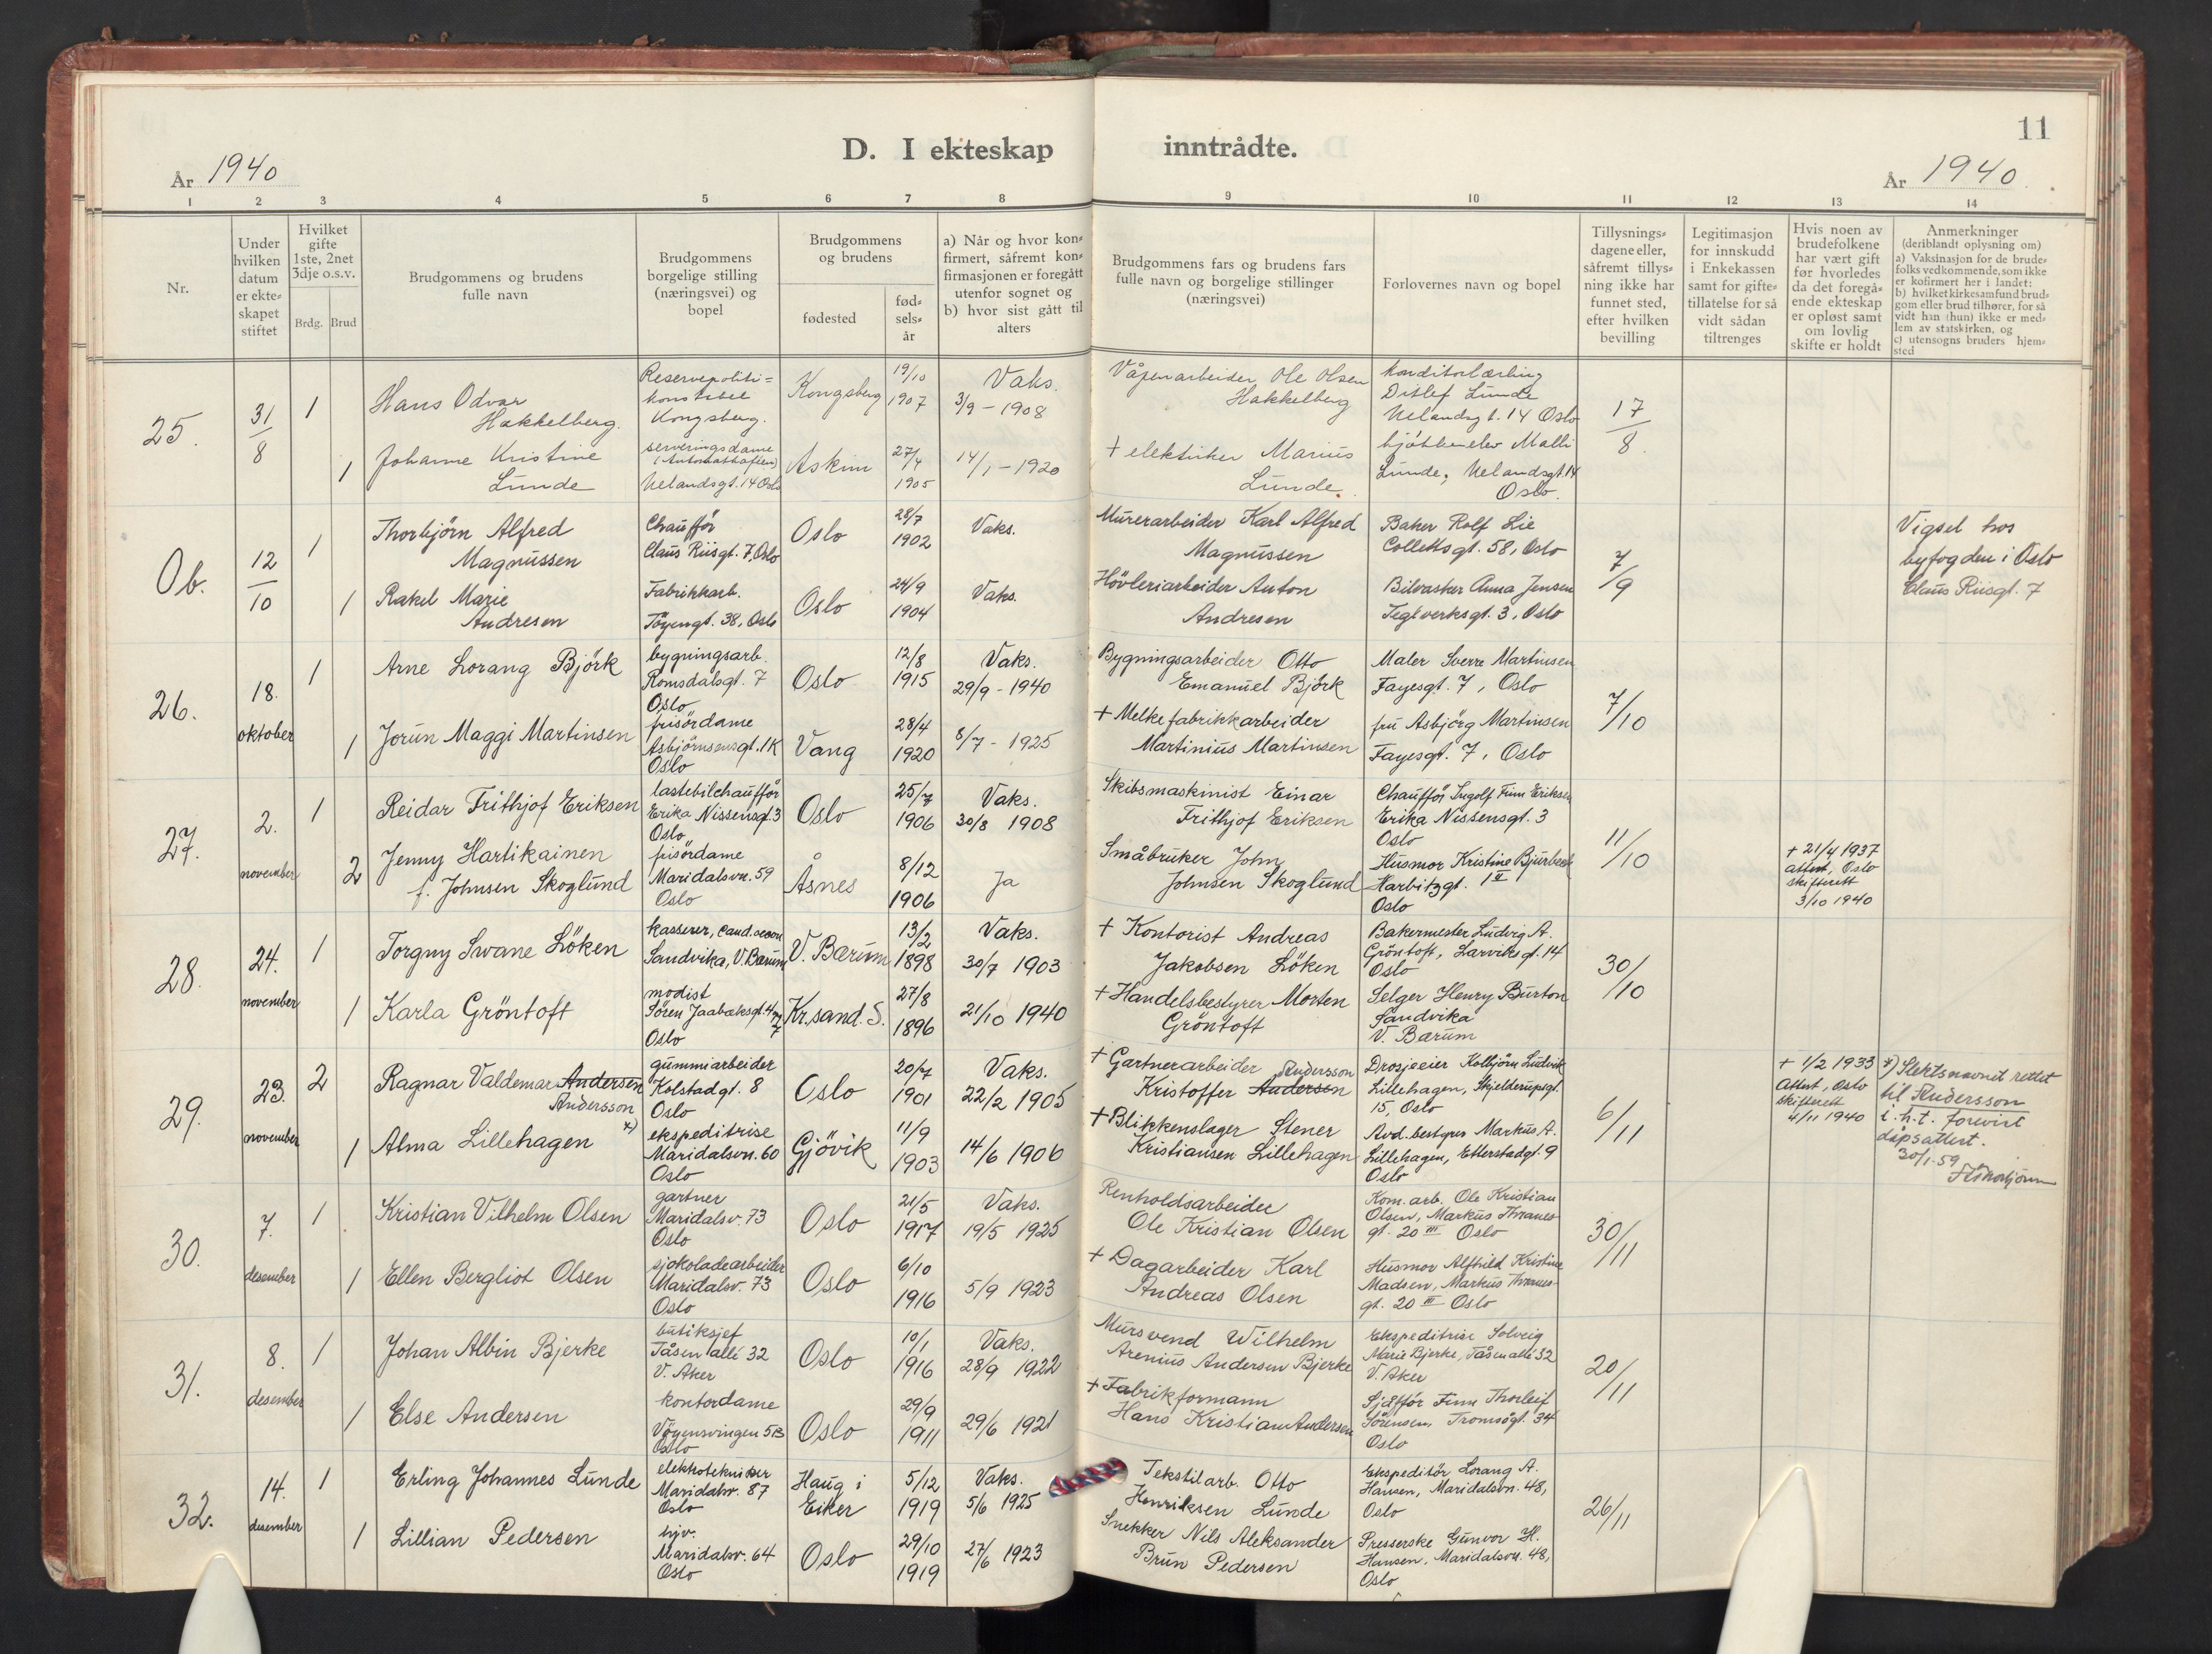 D. I ekteskap inntrådte.
11
År 1940
År 1940.
1 2 3 4 5 6 7 8 9 10 11 12 13 14
Nr.
Under
hvilken
datum
er ekte-
skapet
stiftet
Hvilket
gifte
1ste, 2net
3dje o.s.v.
Brdg. Brud
Brudgommens og brudens
fulle navn
Brudgommens
borgelige stilling
(næringsvei) og
bopel
Brudgommens
og brudens
fødested
fød-
sels-
år
a) Når og hvor kon-
firmert, såfremt kon-
firmasjonen er foregått
utenfor sognet og
b) hvor sist gått til
alters
Brudgommens fars og brudens fars
fulle navn og borgelige stillinger
(næringsvei)
Forlovernes navn og bopel
Tillysnings-
dagene eller,
såfremt tillys-
ning ikke har
funnet sted,
efter hvilken
bevilling
Legitimasjon
for innskudd
i Enkekassen
samt for gifte-
tillatelse for så
vidt sådan
tiltrenges
Hvis noen av
brudefolkene
har vært gift
før hvorledes
da det foregå-
ende ekteskap
er opløst samt
om lovlig
skifte er holdt
Anmerkninger
(deriblandt oplysning om)
a) Vaksinasjon for de brude-
folks vedkommende, som ikke
er kofirmert her i landet:
b) hvilket kirkesamfund brud-
gom eller brud tilhører, for så
vidt han (hun) ikke er med-
lem av statskirken, og
c) utensogns bruders hjem-
sted
25.
31/8
1
Hans Odvar
Hakkelberg.
Reservepoliti=
konstabel
Kongsberg.
Kongsberg
19/10
1907
Vaks.
3/9 - 1908
Våpenarbeider Ole Olsen
Hakkelberg
Konditorlærling
Ditlef Lunde
Uelandsgt. 14 Oslo
17/8
1
Johanne Kristine
Lunde
serveringsdame
(Automatkaféen)
Uelandsgt. 14 Oslo
Askim
27/4
1905
14/1 - 1920
+ elektriker Marius
Lunde.
kjökkenelev Malli
Lunde, Uelandsgt. 14
Oslo.
Ob.
12/10
1
Thorbjörn Alfred
Magnussen
Chaufför
Claus Riisgt. 7, Oslo
Oslo
28/7
1902
Vaks.
Murerarbeider Karl Alfred
Magnussen
Baker Rolf Lie
Collettsgt. 58, Oslo
7/9
Vigsel hos
byfogden i Oslo
Claus Riisgt. 7
1
Rakel Marie
Andresen
Fabrikkarb.
Töyengt. 38, Oslo
Oslo
24/9
1904
Vaks.
Hövleriarbeider Anton
Andresen
Bilvasker Anna Jensen
Teglverksgt. 3, Oslo
26.
18.
oktober
1
Arne Lorang Björk
bygningsarb.
Romsdalsgt. 7
Oslo
Oslo
12/8
1915
Vaks.
29/9 - 1940
Bygningsarbeider Otto
Emanuel Björk
Maler Sverre Martinsen
Fayesgt. 7, Oslo
7/10
1
Jorun Maggi Martinsen
frisördame
Asbjörnsensgt. 1K
Oslo
Vang
28/4
1920
8/7 - 1925
+ Melkefabrikkarbeider
Martinius Martinsen
fru Asbjörg Martinsen
Fayesgt. 7, Oslo
27.
2.
november
1
Reidar Frithjof Eriksen
lastebilchaufför
Erika Nissensgt. 3
Oslo
Oslo
25/7
1906
Vaks.
30/8 1908
Skibsmaskinist Einar
Frithjof Eriksen
Chaufför Ingolf Finn Eriksen
Erika Nissensgt. 3
Oslo
11/10
2
Jenny Hartikainen
f. Johnsen Skoglund
frisördame
Maridalsvn. 59
Oslo
Åsnes
8/12
1906
Ja
Småbruker John
Johnsen Skoglund
Husmor Kristine Bjurbeck
Harbitzgt. 1 II
Oslo
+ 21/4 1937
attest, Oslo
skifterett
3/10 1940
28.
24.
november
1
Torgny Swane Löken
kasserer, cand. oecon
Sandvika, V. Bærum
V. Bærum
13/2
1898
Vaks.
30/7 1903
+ Kontorist Andreas
Jakobsen Löken
Bakermester Ludvig A.
Gröntoft, Larviksgt. 14
Oslo
30/10
1
Karla Gröntoft
modist
Sören Jaabæksgt. 4
Oslo
Kr.sand. S.
27/8
1896
21/10 1940
+ Handelsbestyrer Morten
Gröntoft
Selger Henry Burton
Sandvika
V. Bærum
29.
23.
november
2
Ragnar Valdemar Andersen
Andersson
x)
gummiarbeider
Kolstadgt. 8
Oslo
Oslo
20/7
1901
Vaks.
22/2 1905
+ Gartnerarbeider Andersson
Kristoffer Andersen
Drosjeeier Kolbjörn Ludvik
Lillehagen, Skjelderupsgt.
15, Oslo
6/11
+ 1/2 1933
Attest, Oslo
skifterett
4/11 1940
x) Slektsnavnet rettet
til Andersson
i. h. t. forevist
dåpsattest.
30/1-59
1
Alma Lillehagen
ekspeditrise
Maridalsvn. 60
Oslo
Gjövik
11/9
1903
14/6 1906
+ Blikkenslager Stener
Kristiansen Lillehagen
Avd. bestyrer Markus A.
Lillehagen, Etterstadgt. 9
Oslo
30.
7.
desember
1
Kristian Vilhelm Olsen
gartner
Maridalsv. 73
Oslo
Oslo
21/5
1917
Vaks.
19/5 1925
Renholdsarbeider
Ole Kristian Olsen
Kom. arb. Ole Kristian
Olsen, Markus Thranes
gt. 20 III Oslo
30/11
1
Ellen Bergliot Olsen
sjokoladearbeider
Maridalsv. 73
Oslo
Oslo
6/10
1916
5/9 1923
+ Dagarbeider Karl
Andreas Olsen
Husmor Alfhild Kristine
Madsen, Markus Thranes-
gt. 20 III Oslo
31.
8.
desember
1
Johan Albin Bjerke
butiksjef
Tåsen allé 32
V. Aker
Oslo
10/1
1916
Vaks.
28/9 1922
Mursvend Wilhelm
Arenius Andersen Bjerke
Ekspeditrise Solveig
Marie Bjerke, Tåsen allé 32
V. Aker
20/11
1
Else Andersen
kontordame
Vöyensvingen 5B
Oslo
Oslo
29/9
1911
29/6 1921
+ Fabrikformann
Hans Kristian Andersen
Sjåfför Finn Thorleif
Sörensen, Tromsögt. 34
Oslo
32.
14.
desember
1
Erling Johannes Lunde
elektrotekniker
Maridalsv. 87
Oslo
Haug i
Eiker
5/12
1919
Vaks.
5/6 1925
Tekstilarb. Otto
Henriksen Lunde
Ekspeditör Lorang A.
Hansen, Maridalsvn. 48,
Oslo
26/11
1
Lillian Pedersen
hjv.
Maridalsv. 64
Oslo
Oslo
29/10
1919
27/6 1923
Snekker Nils Aleksander
Brun Pedersen
Presserske Gunvor H.
Hansen, Maridalsvn. 48,
Oslo